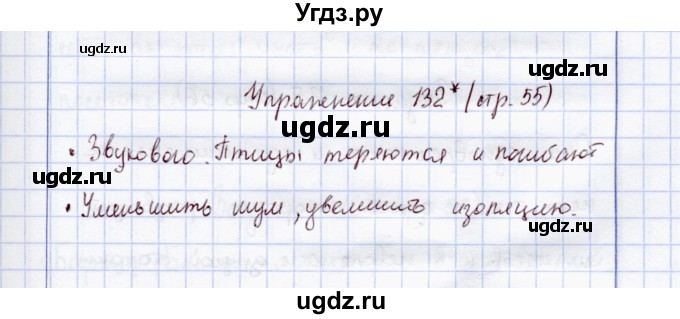 Угдз.ру
ugdz.ru ugdz.ru ugdz.ru
Упражнение 132* (стр. 55)
ugdz.ru ugdz.ru
ugdz.ru
• Звукового. Птицы теряются и погибают
ugdz.ru
• Уменьшить шум, увеличить изоляцию.
ugdz.ru ugdz.ru
ugdz.ru
ugdz.ru